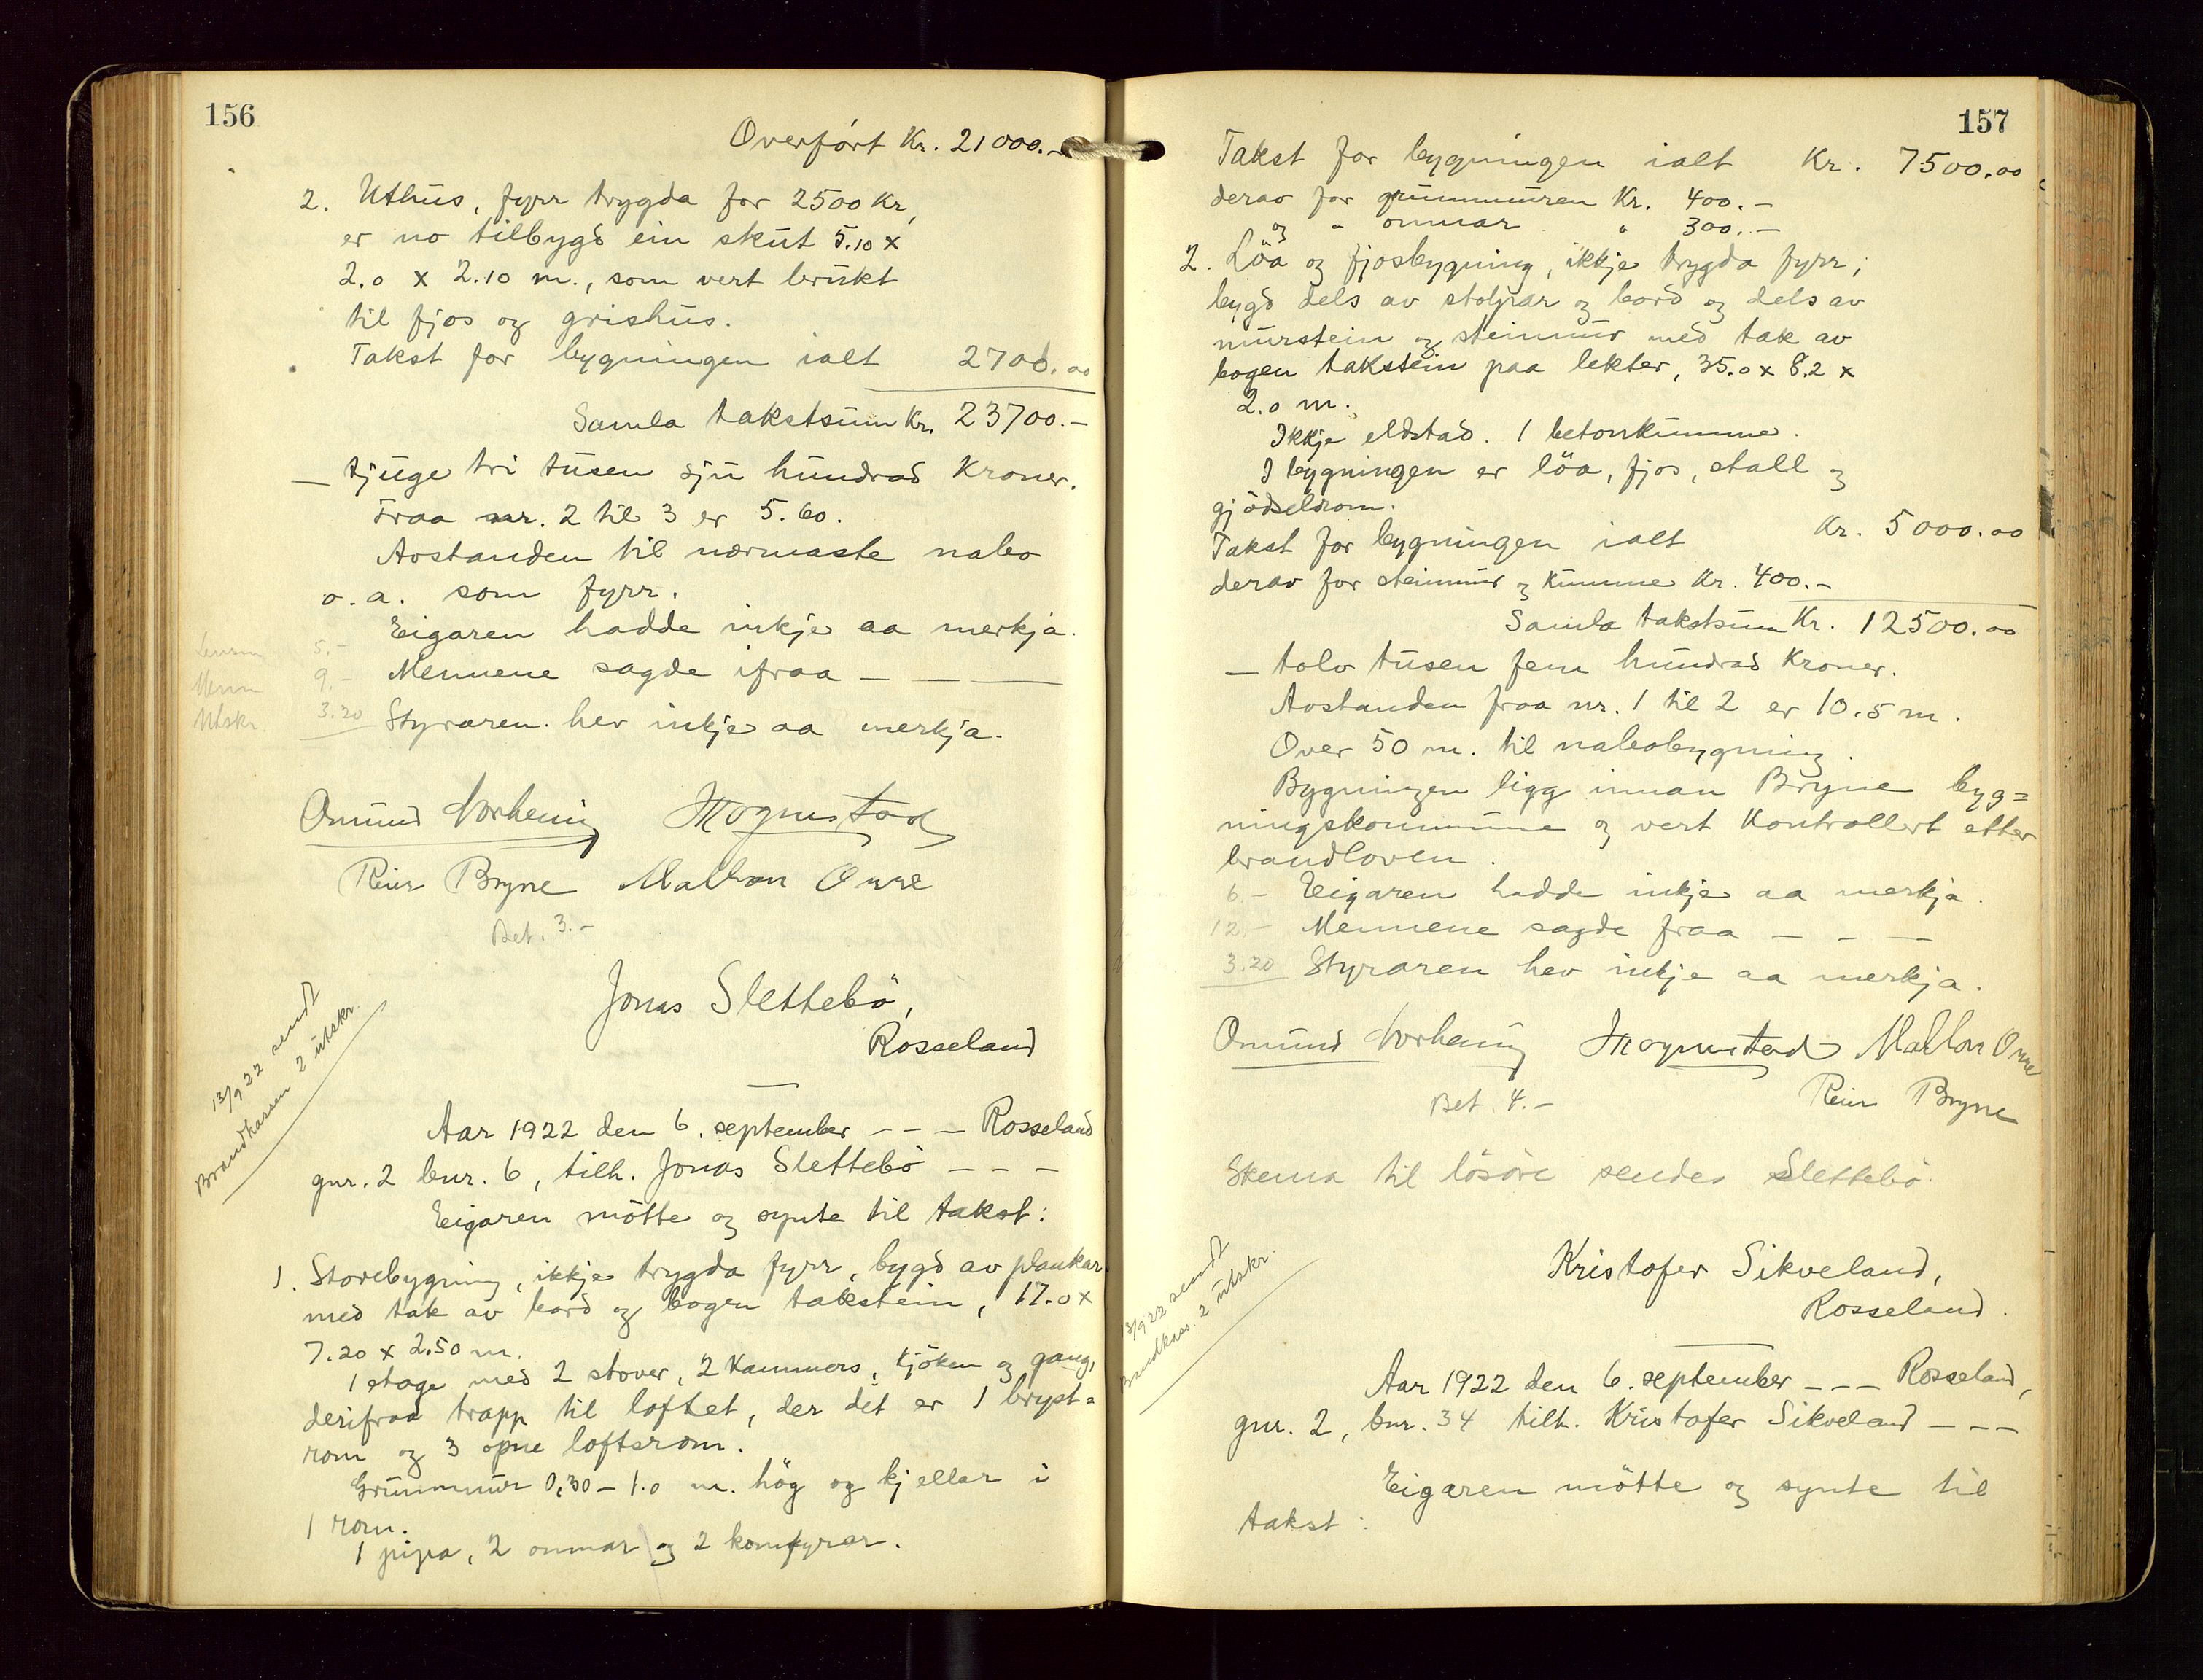 156
Overført Kr. 21000.-
2. Uthus, fyrr trygda for 2500 Kr,
er no tilbygd ein skut 5.10 x
2.0 x 2.10 m., som vert brukt
til fjos og grishus.
Takst for bygningen ialt 2700.00
Samla takstsum Kr. 23700.-
— tjuge tri tusen sju hundrad Kroner.
Fraa nr. 2 til 3 er 5.60.
Avstanden til nærmaste nabo
o.a. som fyrr.
Eigaren hadde inkje aa merkja.
5.-
Menn 9.- Mennene sagde ifraa — — —
Utskr. 3.20 Styraren hev inkje aa merkja.
Omund Norheim
Reier Bryne
Bet. 3.-
Jonas Slettebö,
Rosseland
13/9 22 sendt
Brandkassen 2 utskr.
Aar 1922 den 6. september - - - Rosseland
gnr. 2 bnr. 6, tilh. Jonas Slettebö - - -
Eigaren mötte og synte til takst:
1. Stovebygning, ikkje trygda fyrr, bygd av plankar
med tak av bord og bogen takstein, 17.0 x
7.20 x 2.50 m.
1 etage med 2 stover, 2 Kammers, Kjöken og gang,
derifraa trapp til loftet, der det er 1 bryst=
rom og 3 opne loftsrom.
Grunnmur 0,30 – 1.0 m. hög og kjellar i
1 rom.
1 pipa, 2 omnar og 2 komfyrar.
157
Takst for bygningen ialt Kr. 7500.00
derav for grunnmuren Kr. 400.-
og " omnar " 300.-
2. Löa og fjosbygning, ikkje trygda fyrr,
bygd dels av stolpar og bord og dels av
murstein og steinmur med tak av
bogen takstein paa lekter, 35.0 x 8.2 x
2.0 m.
Ikkje eldstad. 1 betonkumme.
I bygningen er löa, fjos, stall og
gjödselrom.
Takst for bygningen ialt Kr. 5000.00
derav for steinmur og kumme Kr. 400.-
Samla takstsum Kr. 12500.00
— tolv tusen fem hundrad Kroner.
Avstanden fraa nr. 1 til 2 er 10.5 m.
Over 50 m. til nabobygning.
Bygningen ligg innan Bryne byg=
ningskommune og vert Kontrollert etter
brandloven.
6.- Eigaren hadde inkje aa merkja.
12.- Mennene sagde fraa — - —
3.20 Styraren hev inkje aa merkja.
Omund Norheim
Bet. 4.- Reier Bryne
Skema til lösöre sendes Slettebö.
Kristofer Sikveland,
Rosseland.
13/9 22 sendt
Brandkas. 2 utskr.
Aar 1922 den 6. september - - - Rosseland,
gnr. 2, bnr. 34 tilh. Kristofer Sikveland - - -
Eigaren mötte og synte til
takst: